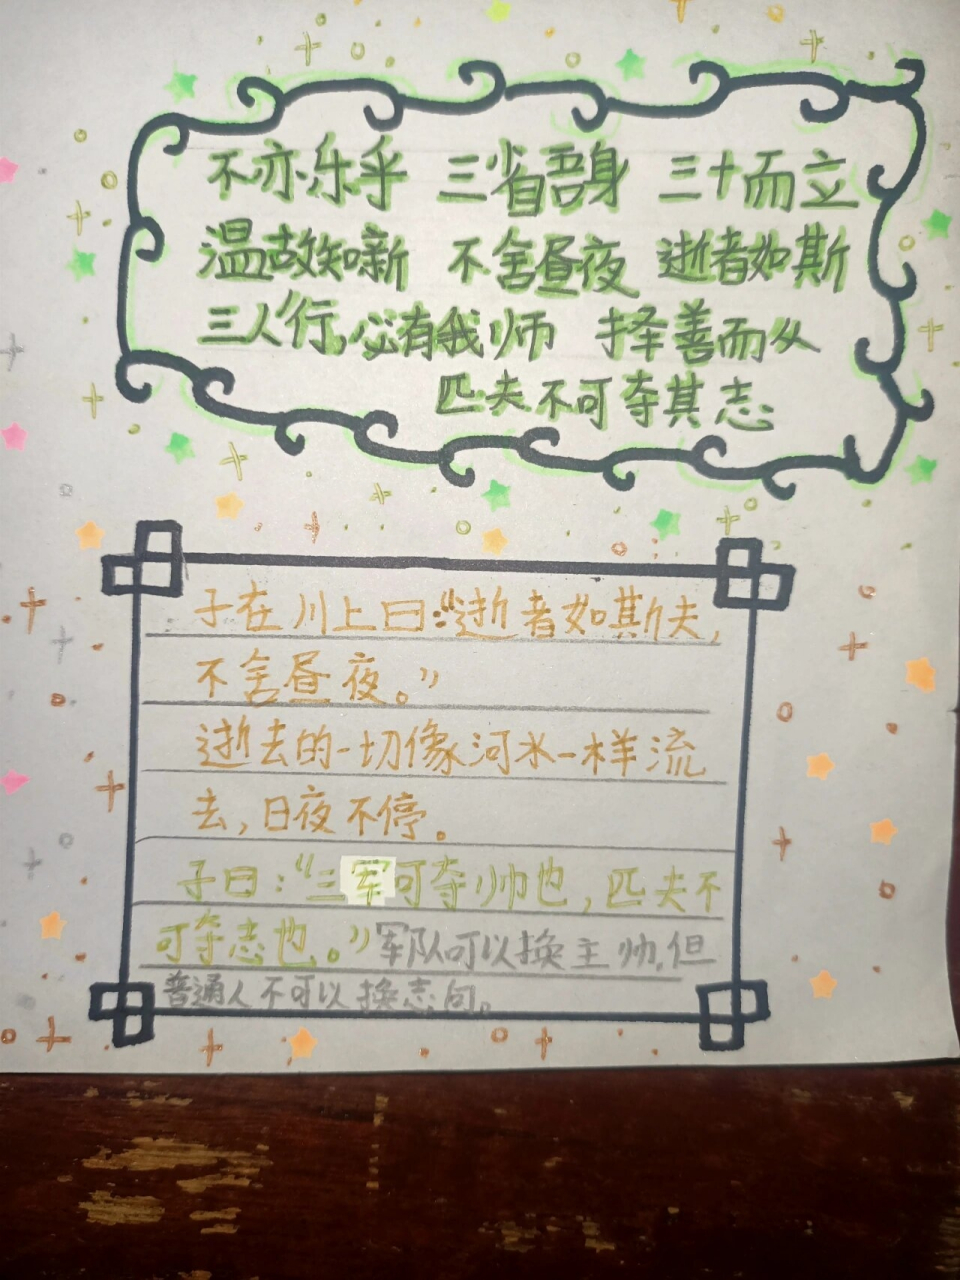 不亦乐乎 三省吾身 三十而立
温故知新 不舍昼夜 逝者如斯
三人行,必有我师 择善而从
匹夫不可夺其志
子在川上曰:“逝者如斯夫,
不舍昼夜。”
逝去的一切像河水一样流
去,日夜不停。
子曰:“三军可夺帅也,匹夫不
可夺志也。”军队可以换主帅,但
普通人不可以换志向。